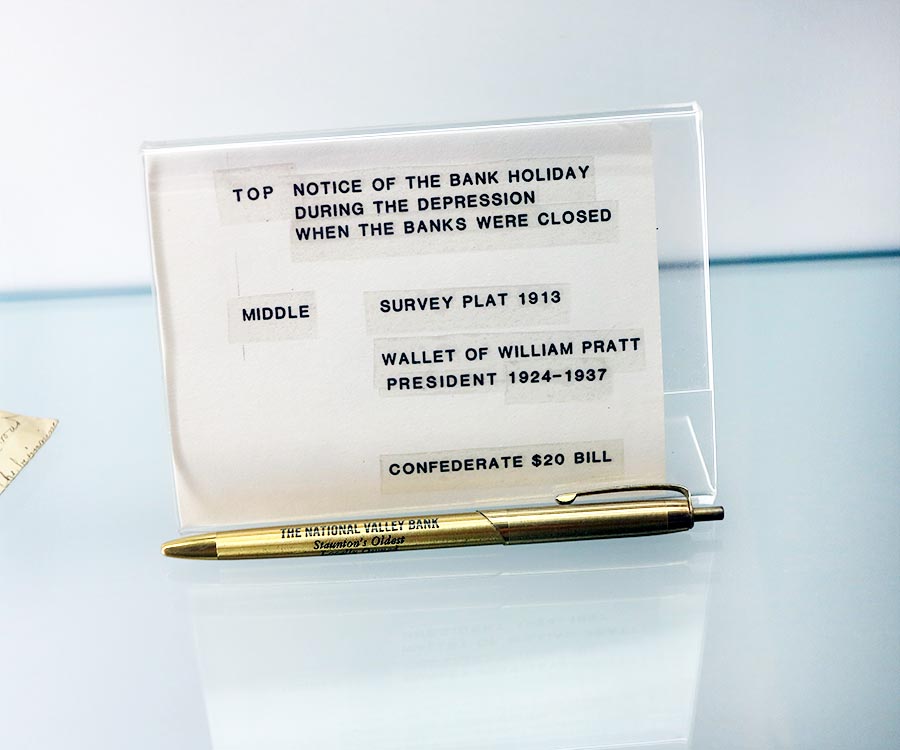 TOP NOTICE OF THE BANK HOLIDAY
DURING THE DEPRESSION
WHEN THE BANKS WERE CLOSED
MIDDLE SURVEY PLAT 1913
WALLET OF WILLIAM PRATT
PRESIDENT 1924-1937
CONFEDERATE $20 BILL
THE NATIONAL VALLEY BANK
Staunton's Oldest